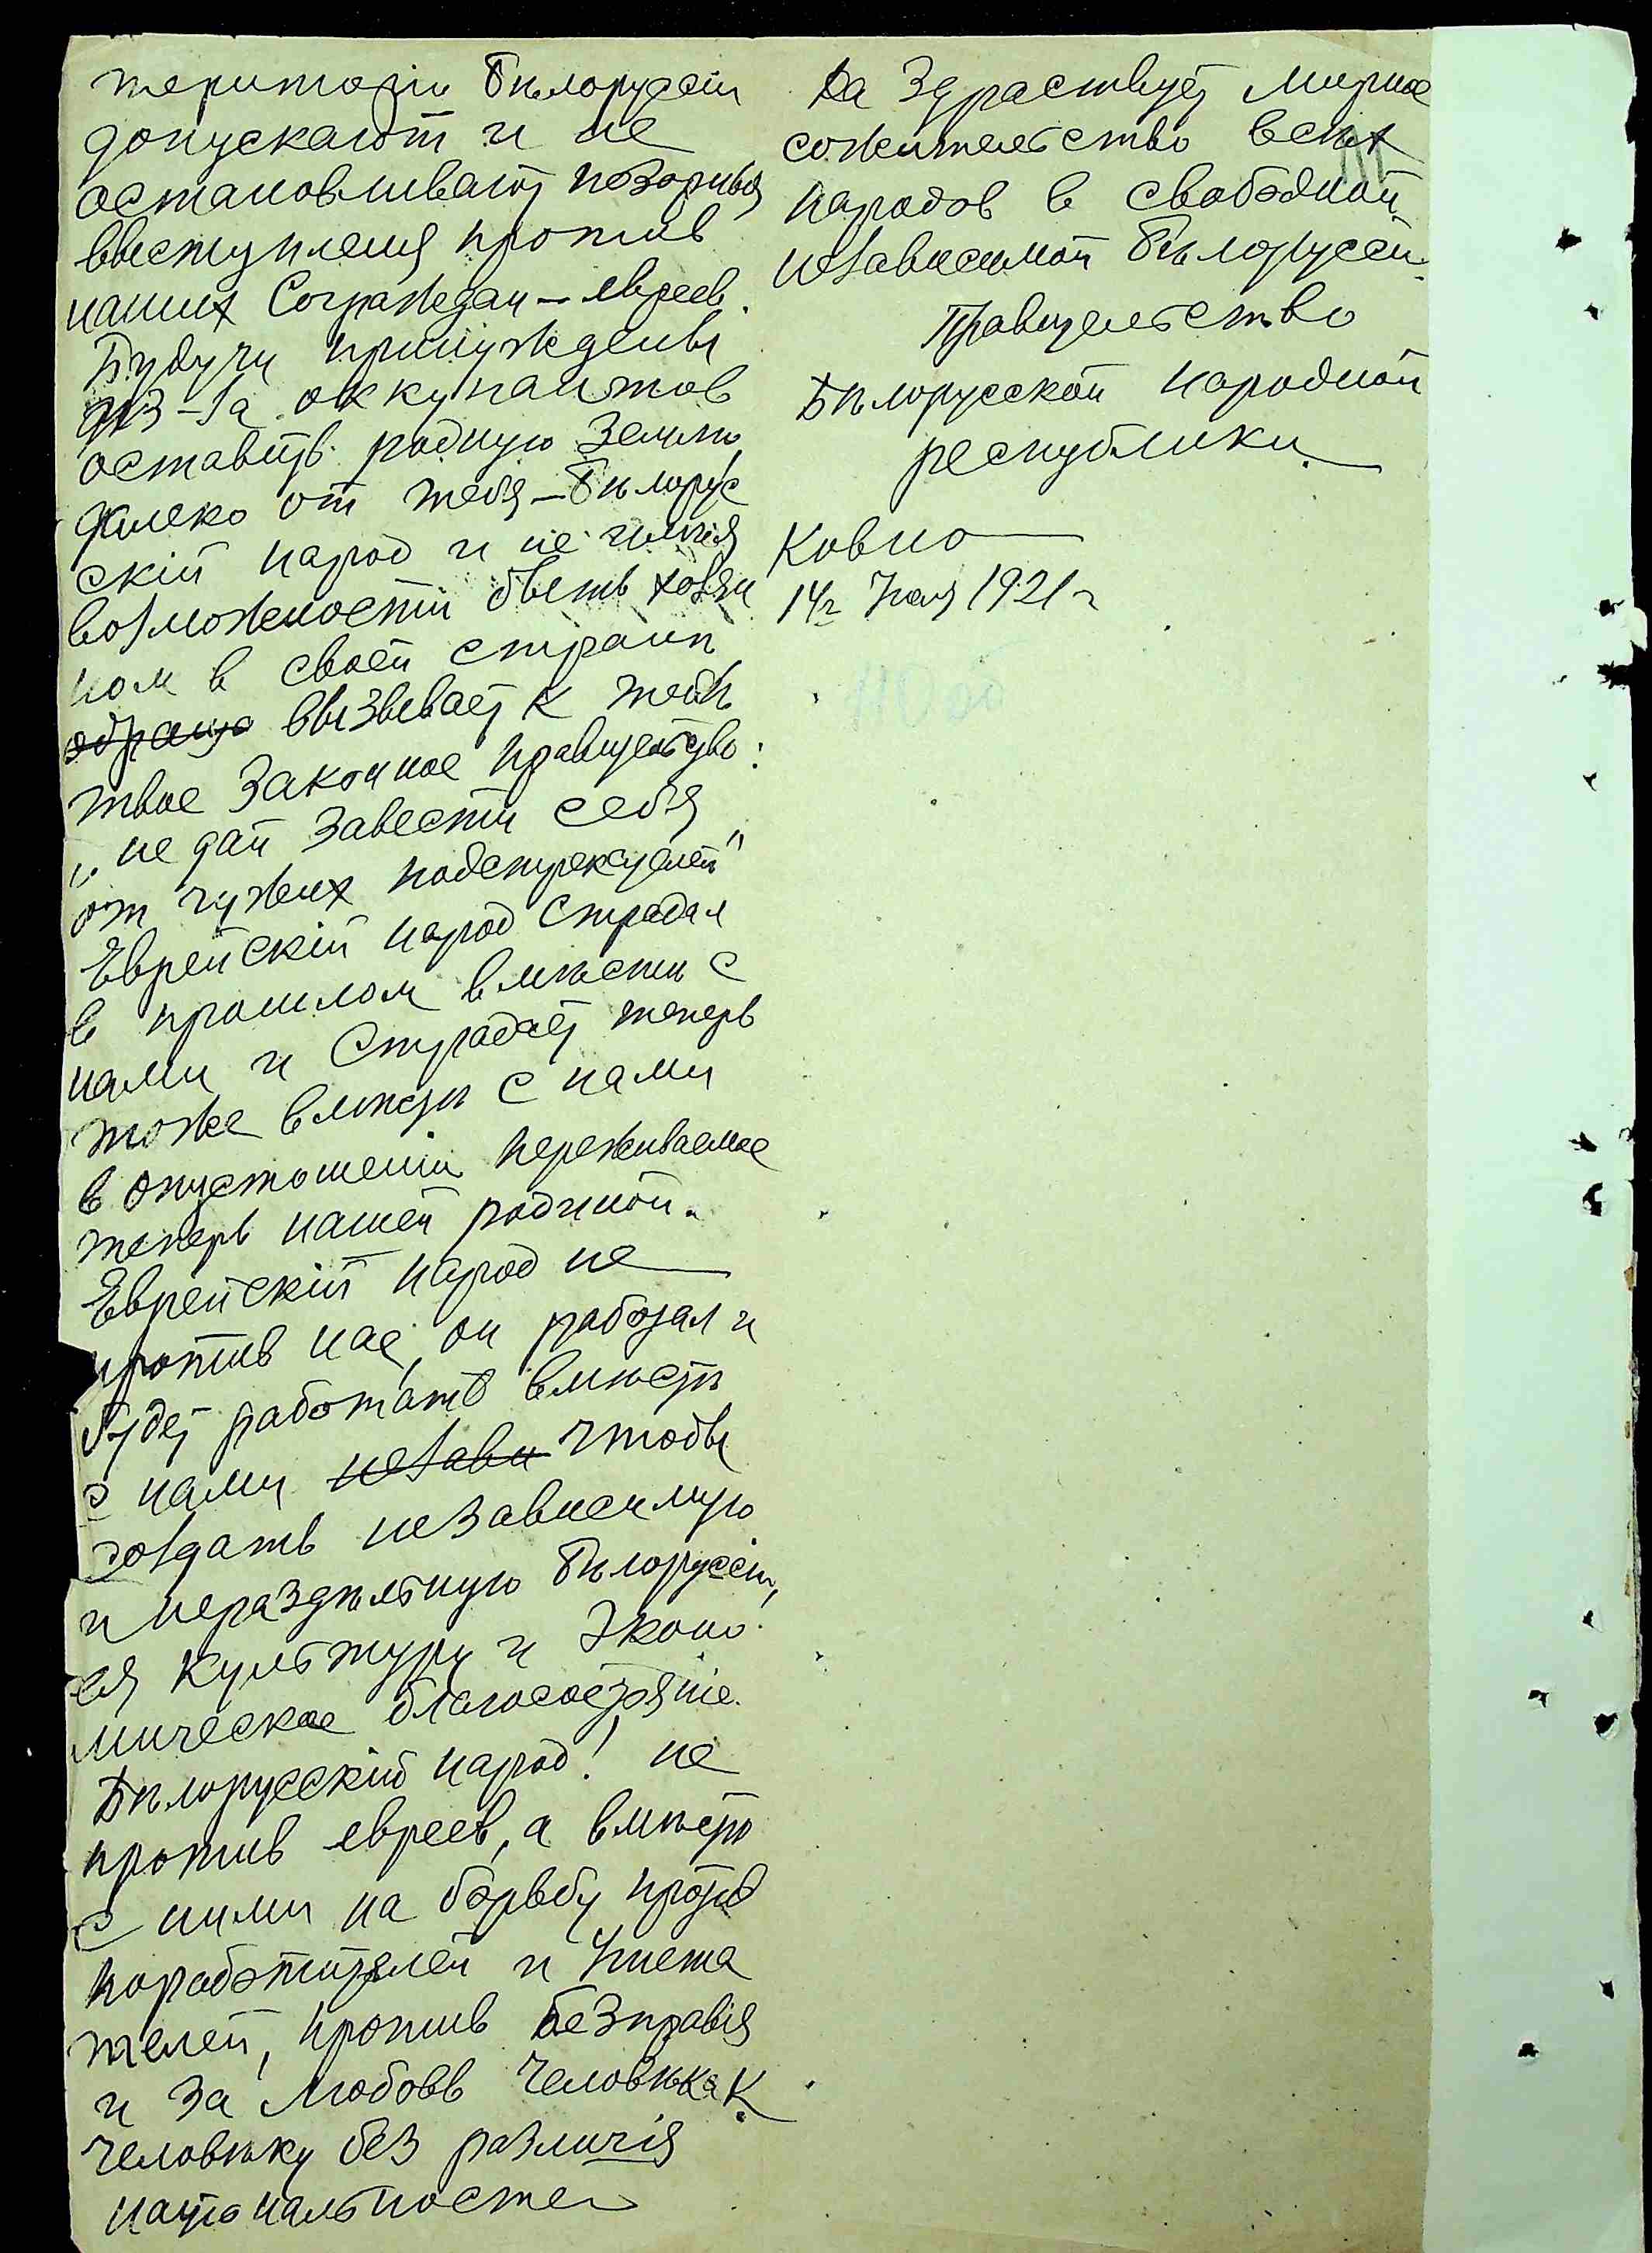 територіи Бѣлоруссіи
допускают и не
остановливают позорныя
выступленя против
наших Сограждан – евреев.
Будучи принуждены
из-за оккупантов
оставить родную землю
далеко от тебя – Бѣлорус
скій народ и не имѣя
возможности быть хозяи
ном в своей странѣ
обраща вызывает к тебѣ
твое законное правительство:
„не дай завести себя
от чужих подстрекателей"
Еврейскій народ страдал
в прошлом вмѣстѣ с
нами и страдает теперь
тоже вмѣстѣ с нами
в опустошеніи переживаемое
теперь нашей родиной.
Еврейскій народ не
против нас, он работал и
будет работать вмѣстѣ
с нами незави чтобы
создать независимую
и нераздѣльную Бѣлоруссію,
ея культуру и эконо
мическое благосостояніе.
Бѣлорусскій народ! не
против евреев, а вмѣстѣ
с ними на борьбу против
поработителей и угнета
телей, против безправія
и за любовь человѣка к
человѣку без различія
національностей
Да здраствует мирное
сожительство всѣх
народов в свободной
независимой Бѣлоруссіи.
Правительство
Бѣлорусской народной
республики.
Ковно
14г 1921 г